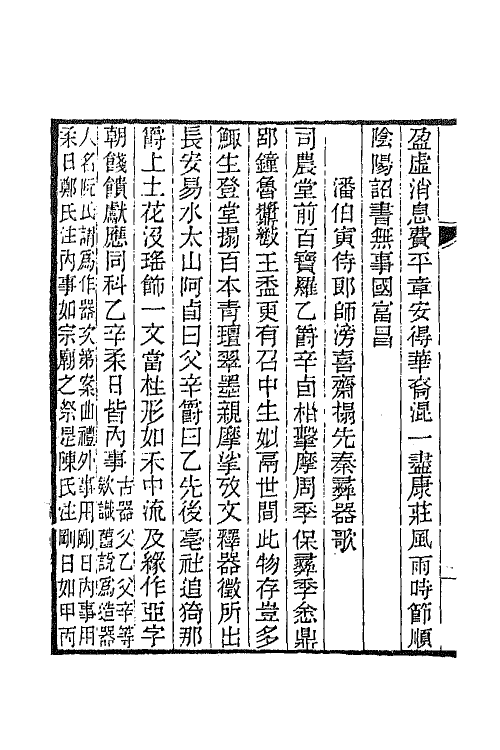 盈虛消息費平章安得華裔混一盡康莊風雨時節順
陰陽詔書無事國富昌
潘伯寅侍郎師滂喜齋搨先秦彝器歌
司農堂前百寶羅乙爵辛卣相擊摩周季保彝季悆鼎
郘鐘魯王盉更有召中生妣鬲世間此物存豈多
鯫生登堂搨百本青璮翠墨親摩挲攷文釋器徵所出
長安易水太山阿卣曰父辛爵曰乙先後亳社追猗那
爵上土花沒瑤飾一文當柱形如禾中流及緣作亞字
朝餞饋獻應同科乙辛柔日皆內事
古器父乙父辛等
欵識舊說爲造器
人名阮氏謂爲作器次第案曲禮外事用剛日內事用
柔日鄭氏注內事如宗廟之祭是陳氏注剛日如甲丙